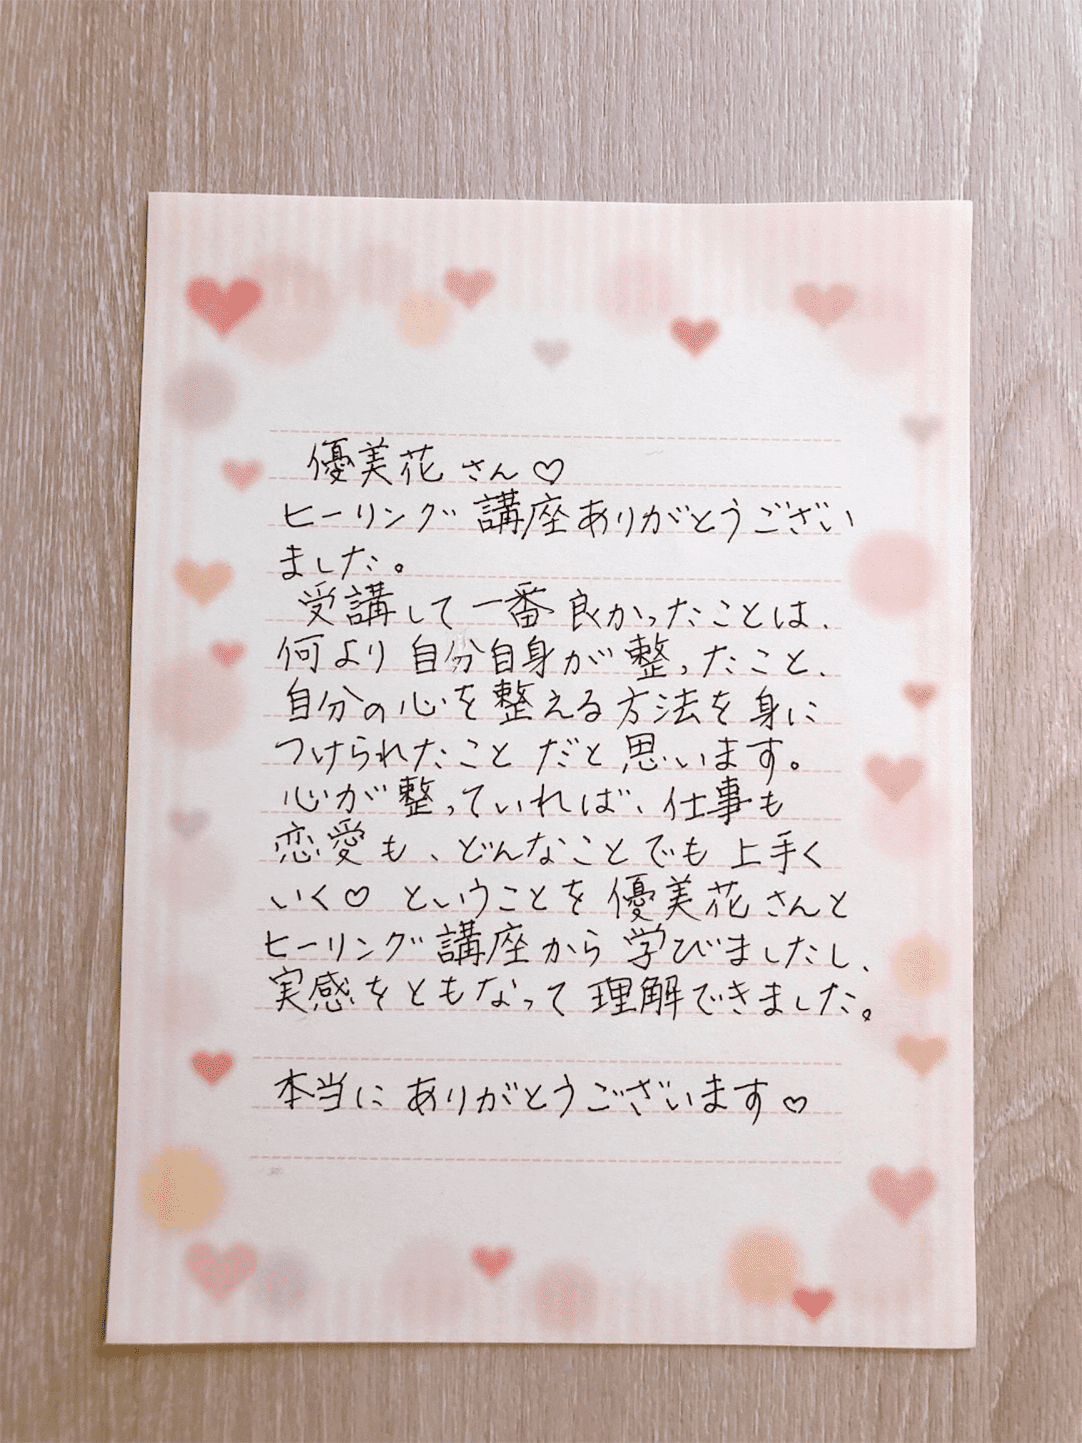 優美花さん♡
ヒーリング講座ありがとうござい
ました。
受講して一番良かったことは、
何より自分自身が整ったこと、
自分の心を整える方法を身に
つけられたことだと思います。
心が整っていれば、仕事も
恋愛も、どんなことでも上手く
いく♡ということを優美花さんと
ヒーリング講座から学びましたし、
実感をともなって理解できました。
本当にありがとうございます♡